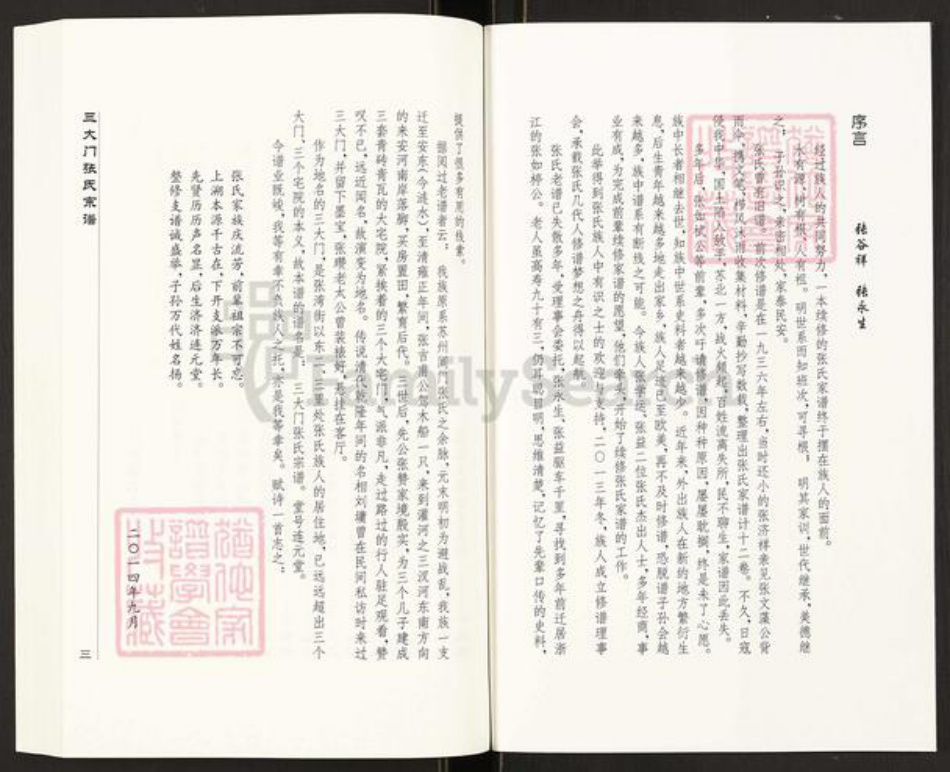 序言
张谷祥 张永生
经过族人的共同努力，一本续修的张氏家谱终于摆在族人的面前。
水有源，树有根，人有祖。明世系而知班次，可寻根，明其家训，世代继承，美德继
之；子孙识之，亲密相处，家泰民安。
张氏曾有旧谱。前次修谱是在一九三六年左右，当时还小的张济祥亲见张文藻公背
雨伞，携文笔，栉风沐雨收集材料，辛勤抄写数载，整理出张氏家谱计十二卷。不久，日寇
侵我中华，国土陷入敌手，苏北一方，战火频起，百姓流离失所，民不聊生，家谱因此丢失。
多年后，张如栻公等前辈，多次吁请修谱，因种种原因，屡屡耽搁，终是未了心愿。
族中长者相继去世，知族中世系史料者越来越少。近年来，外出族人在新的地方繁衍生
息，后生青年越来越多地走出家乡，族人足迹已至欧美，再不及时修谱，恐脱谱子孙会越
来越多，族中谱系有断线之可能。令族人张学运、张益二位张氏杰出人士，多年经商，事
业有成，为完成前辈续修家谱的愿望，他们牵头开始了续修张氏家谱的工作。
此举得到张氏族人中有识之士的欢迎与支持，二〇一三年冬，族人成立修谱理事
会，承载张氏几代人修谱梦想之舟得以起航。
张氏老谱已失散多年，受理事会委托，张永生、张益驱车千里，寻找到多年前迁居浙
江的张如椁公。老人虽高寿九十有三，仍耳聪目明，思维清楚，记忆了先辈口传的史料，
提供了很多有用的线索。
据阅过老谱者云：我族原系苏州阊门张氏之余脉，元末明初为避战乱，我族一支
迁至安东（今涟水），至清雍正年间，张吉甫公驾木船一只，来到灌河之三汊河东南方向
的来安河南岸落脚，买房置田，繁育后代。三世后，先公张赞家境殷实，为三个儿子建成
三套青砖青瓦的大宅院，紧挨着的三个大宅门气派非凡，走过路过的行人驻足观看，赞
叹不已，远近闻名，故演变为地名。传说清代乾隆年间的名相刘墉曾在民间私访时来过
三大门，并留下墨宝，张璎老太公曾装裱好，悬挂在客厅。
作为地名的三大门，是张湾街以东二、三里处张氏族人的居住地，已远远超出三个
大门、三个宅院的本义，故本谱的谱名是：三大门张氏宗谱。堂号连元堂。
今谱业既竣，我等有幸不负族人之托，亦是我等幸矣。赋诗一首志之：
张氏家族庆流芳，前辈祖宗不可忘。
上溯本源千古在，下开支派万年长。
先贤历历声名显，后生济济连元堂。
整修支谱诚盛举，子孙万代姓名扬。
二〇一四年九月
三大门张氏宗谱
三
FamilySearch